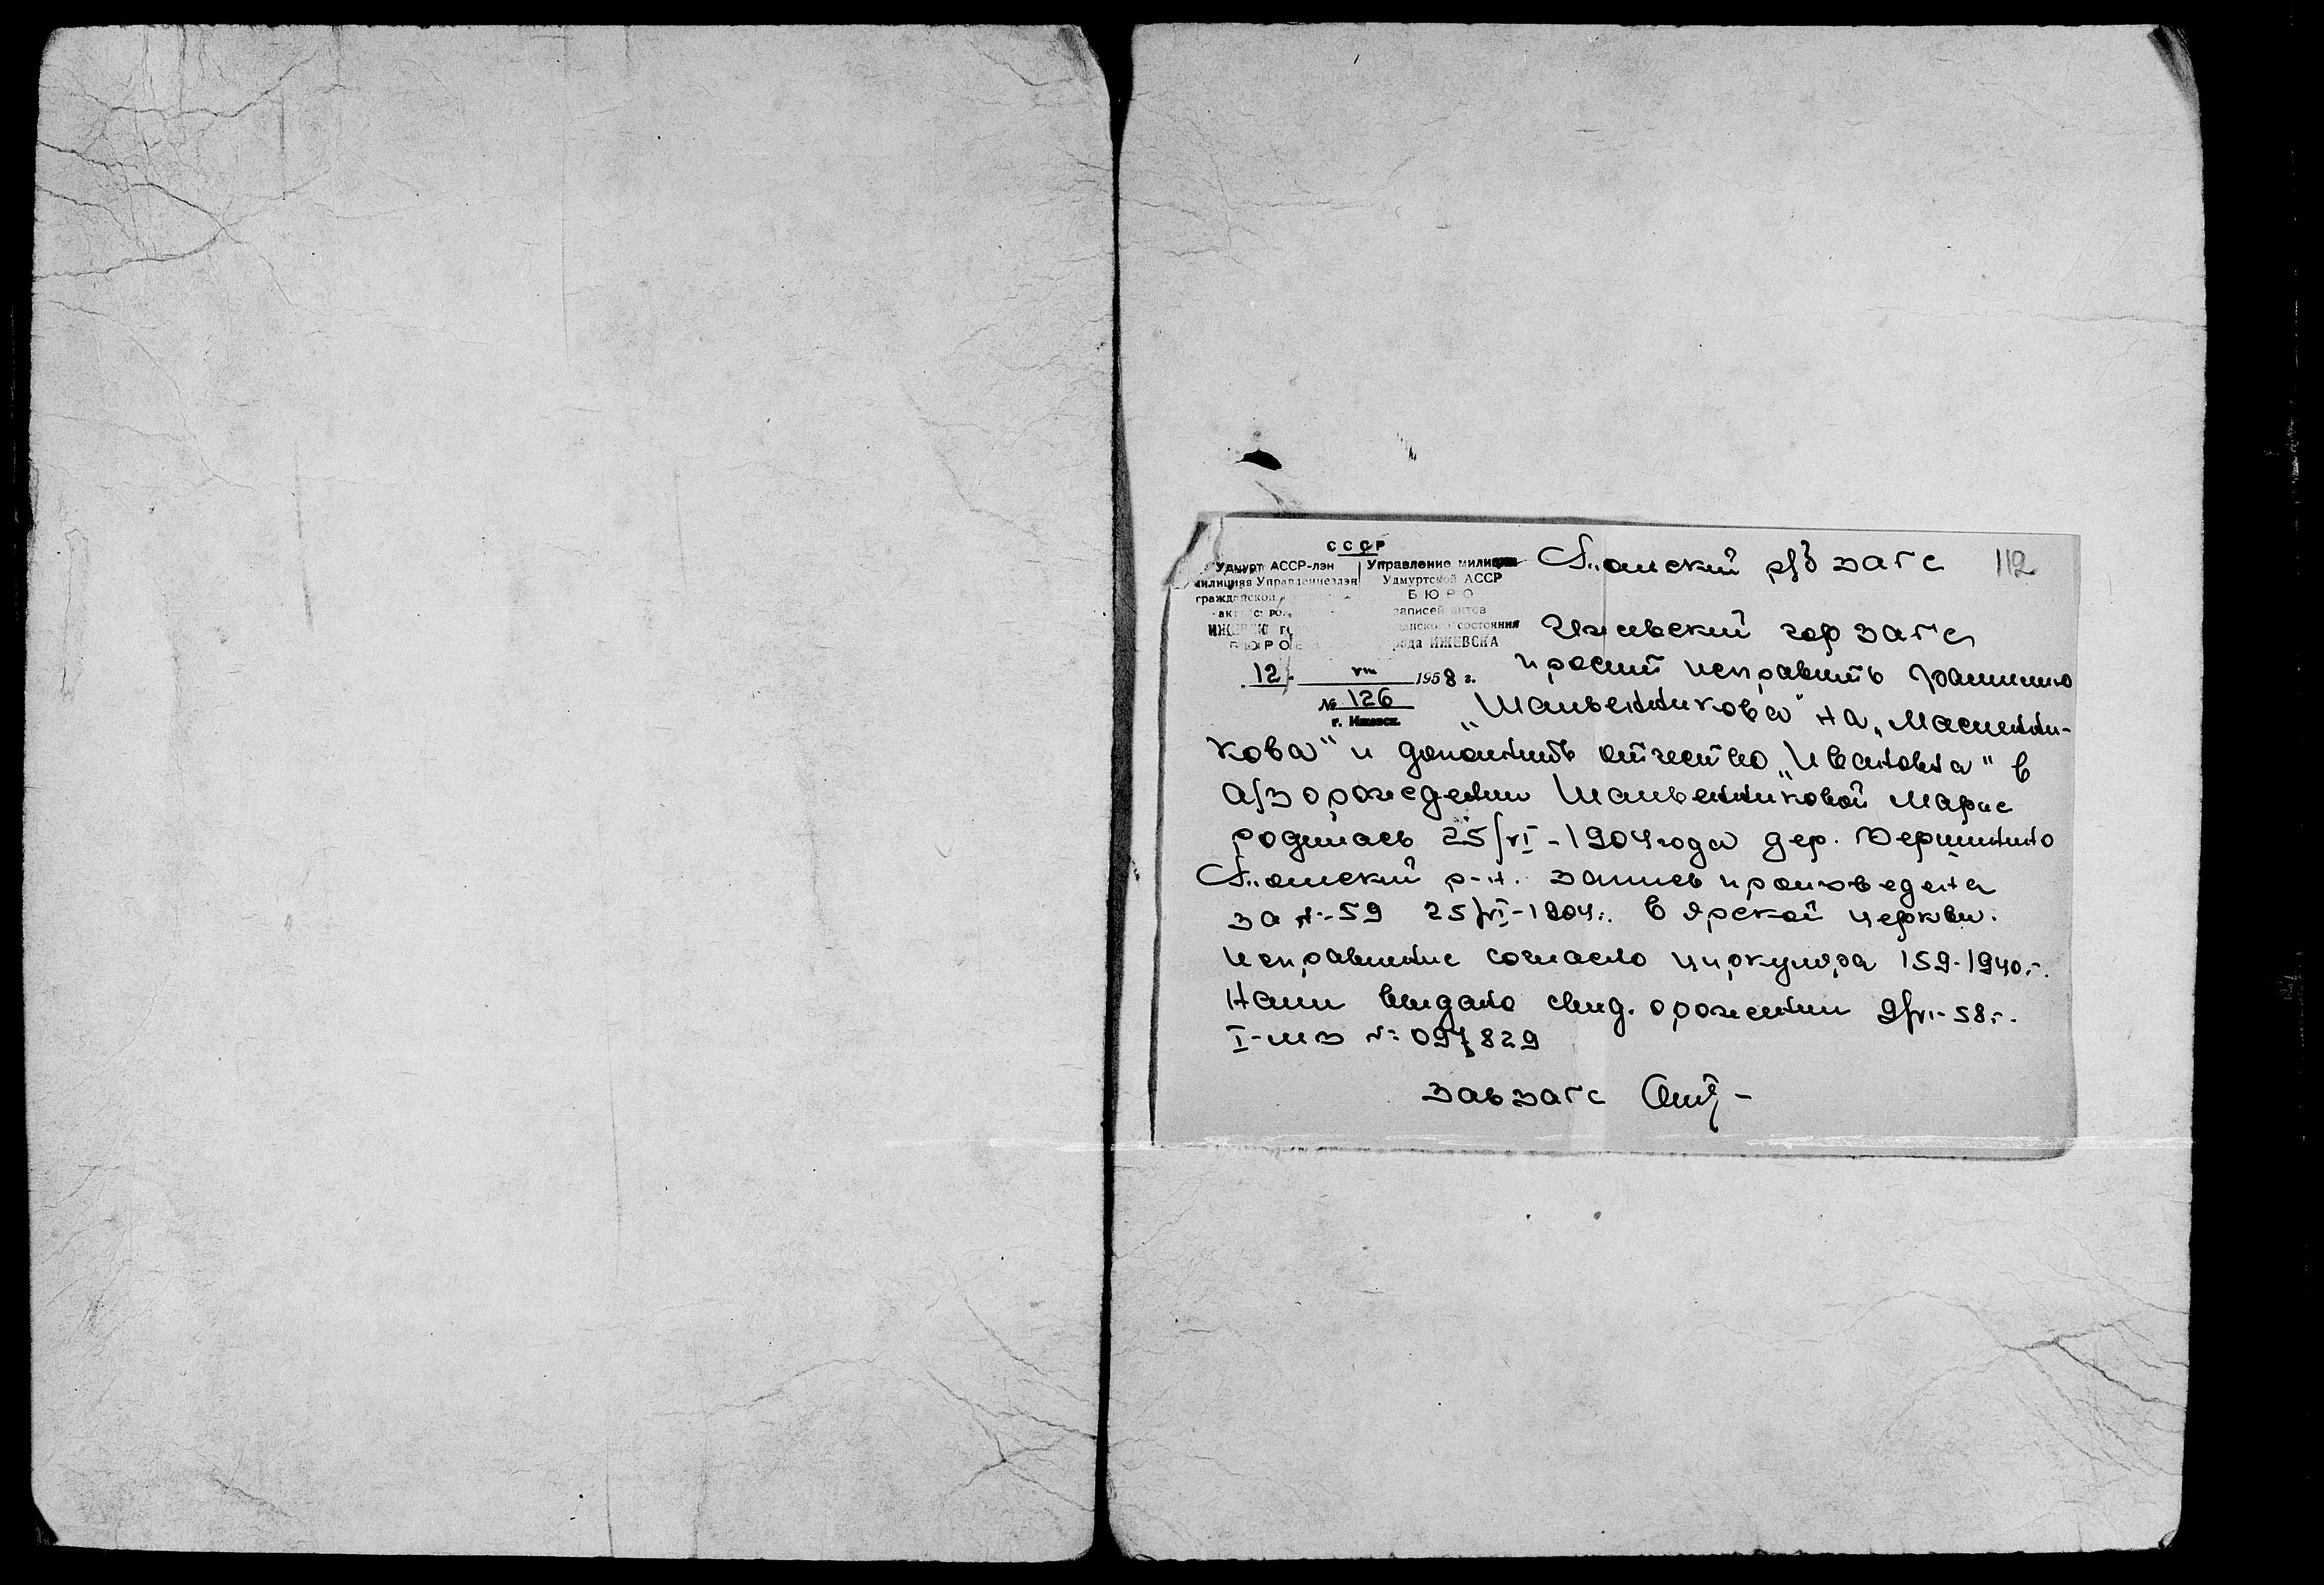 СССР
Удмурт АССР-лэн
милицияя Управлениезлэн
гражданской
акт
ИЖЕВСК
БЮРО
Управление милиции
Удмуртской АССР
БЮРО
записей актов
состояния
ИЖЕВСКА
12/ VIII 1958 г.
№ 126
г. Ижевск
р/б загс 112
Ижевский гор загс
просит исправить фамилию
на „Масленни-
кова" и дополнить отчество „Ивановна" в
а/з о рождении Марие
родилась 25/VI-1904 года дер.
р-н. запись произведена
за №-59 25/VI-1904г. в Ярской церкви.
Исправление согласно циркуляра 159-1940г.
Нами выдано свид. о рожении 9/VI-58г.
I-ШЗ № 097829
завзагс